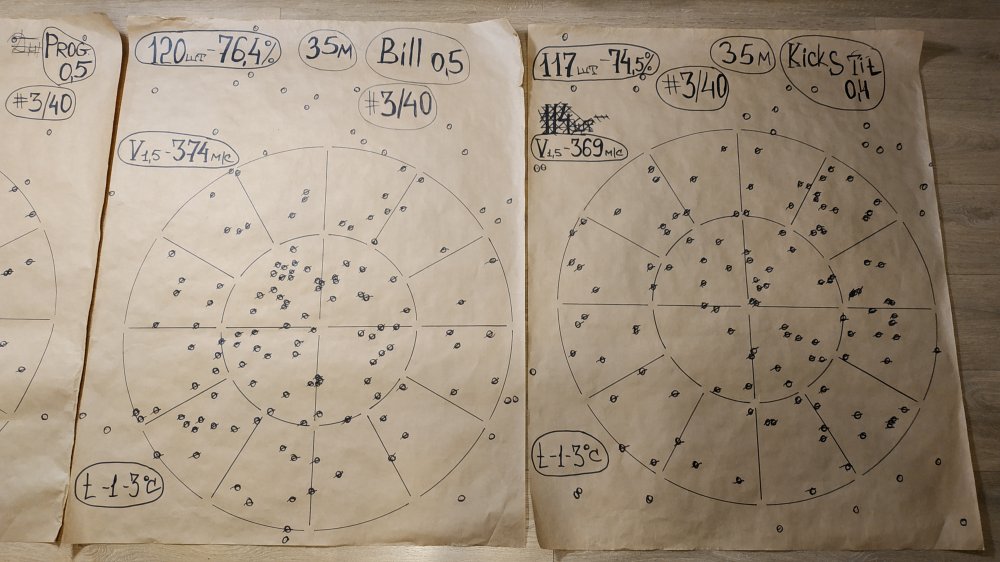 PROG
0,5
#3/40
120 шт - 76,4%
35м
Bill 0,5
#3/40
V1,5 - 374 м/с
t -1-3°C
117 шт - 74,5%
35м
Kicks Tit
0,4
#3/40
V1,5 - 369 м/с
t -1-3°C